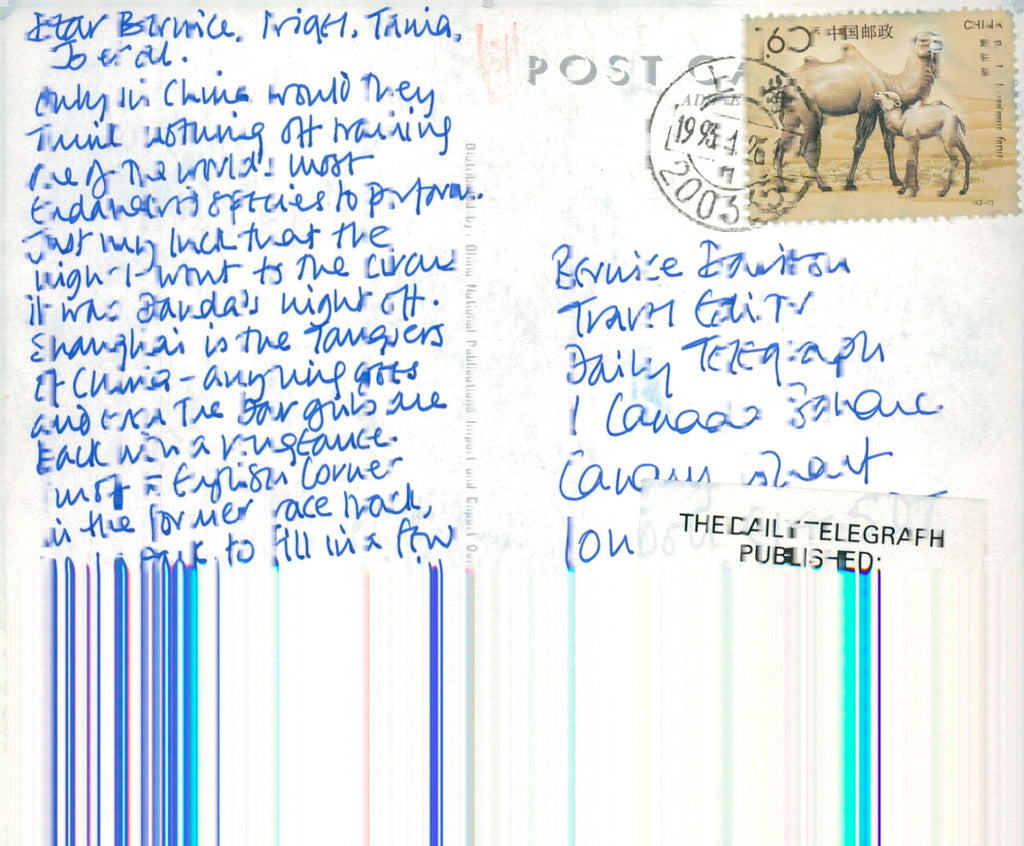 Dear Bernice, Nigel, Tania,
Jo et al.
Only in China would they
think nothing off training
one of the world's most
Endangered species to perform.
Just my luck that the
night I went to the circus
it was Panda's night off.
Shanghai is the Tangiers
of China - anything goes
and even the Bar girls are
back with a vengeance.
English Corner
in the former race track,
to fill in a few
Distributed by China National Publications Import and Export
POST CA
中国邮政
CHINA
1993
2003
Bernice
Travel Editor
Daily Telegraph
1 Canada Square
Canary Wharf
Lon
THE DAILY TELEGRAPH
PUBLISHED: